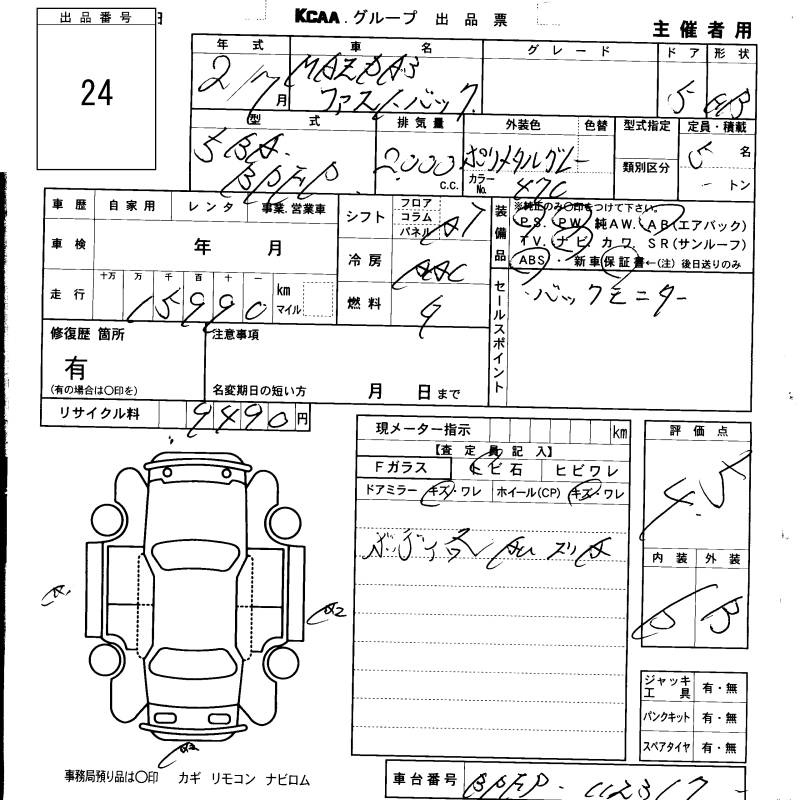 出品番号
24
KCAA グループ 出品票
主催者用
年式 車名 グレード ドア 形状
2/7月 MAZDA3 ファストバック 5 HB
型式 排気量 外装色 色替 型式指定 定員・積載
5BA- BPEP 2000 c.c. ポリメタルグレー カラーNo. 47C 類別区分 5名 - トン
車歴 自家用 レンタ 事業.営業車
シフト フロア コラム パネル AT
車検 年 月
冷房 AAC
走行 十万 万 千 百 十 一
15990 km マイル
燃料 G
装備品
※純正のみ〇印をつけて下さい。
P.S. PW 純AW. AB(エアバック)
TV. ナビ カワ. SR(サンルーフ)
ABS ・ 新車保証書←(注) 後日送りのみ
セールスポイント
・バックモニター
修復歴 箇所
有
(有の場合は〇印を)
注意事項
名変期日の短い方 月 日まで
リサイクル料 9490円
現メーター指示 km
【査定員記入】
Fガラス トビ石 ヒビワレ
ドアミラー キズ・ワレ ホイール(CP) キズ・ワレ
評価点
4.5
内装 外装
B B
A1
A2
ジャッキ工具 有・無
パンクキット 有・無
スペアタイヤ 有・無
事務局預り品は〇印 カギ リモコン ナビロム
車台番号 BPEP - 112317 -